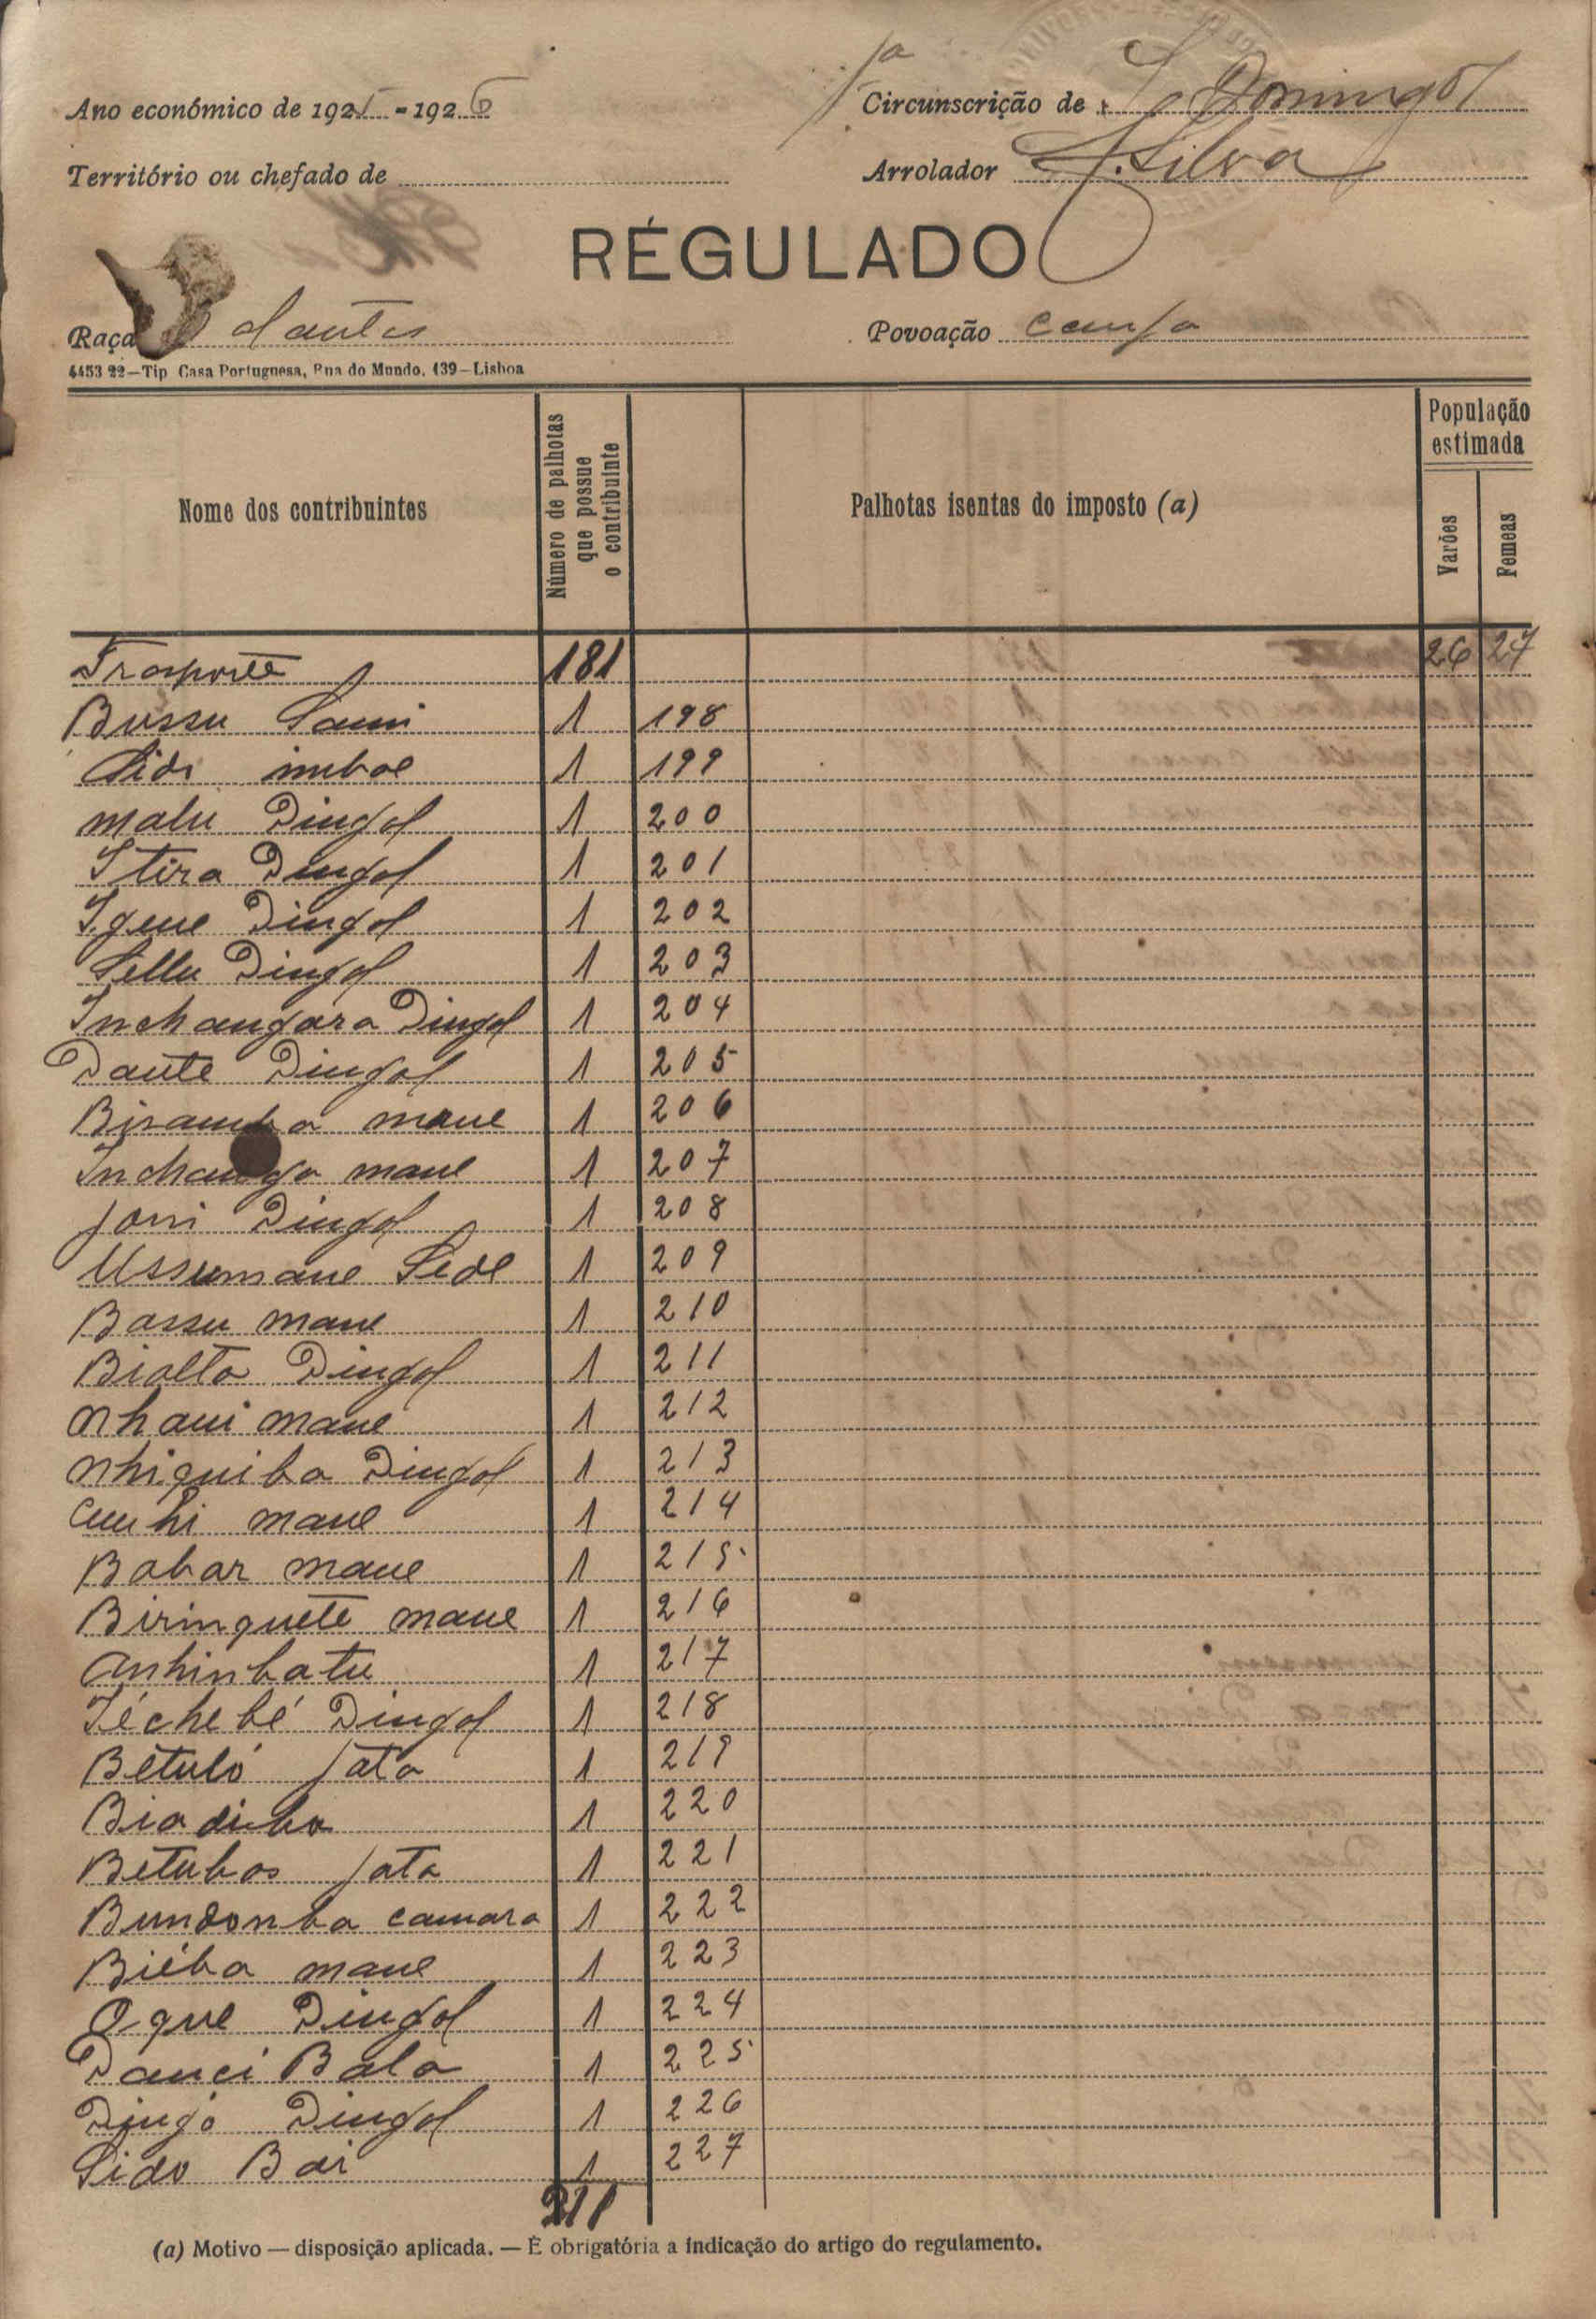 1ª
Ano económico de 1925-1926 Circunscrição de S. Domingos
Território ou chefado de Arrolador J. Silva
RÉGULADO
Raça Povoação
4453 22—Tip Casa Portuguesa, Rua do Mundo, 139—Lisboa
Nome dos contribuintes Número de palhotas que possue o contribuinte Palhotas isentas do imposto (a) População estimada Varões Femeas
Trasporte 181 26 27
Bussu Sami 1 198
Sidi 1 199
Malu Dingol 1 200
Itira Dingol 1 201
Igene Dingol 1 202
Sellu Dingol 1 203
Inchangara Dingol 1 204
Dante Dingol 1 205
Bisamba mane 1 206
Inchango mane 1 207
Joni Dingol 1 208
Ussumane Sede 1 209
Bassu mane 1 210
Bialto Dingol 1 211
Nhani mane 1 212
Nhiquiba Dingol 1 213
Cunhi mane 1 214
Babar mane 1 215
Birinquete mane 1 216
Anhinbatu 1 217
Téchebé Dingol 1 218
Betuló Jata 1 219
Biadinba 1 220
Betubos Jata 1 221
Bundonba camara 1 222
Biéba mane 1 223
Oque Dingol 1 224
Danci Bala 1 225
Dingó Dingol 1 226
Sido Bai 1 227
211
(a) Motivo — disposição aplicada. — É obrigatória a indicação do artigo do regulamento.